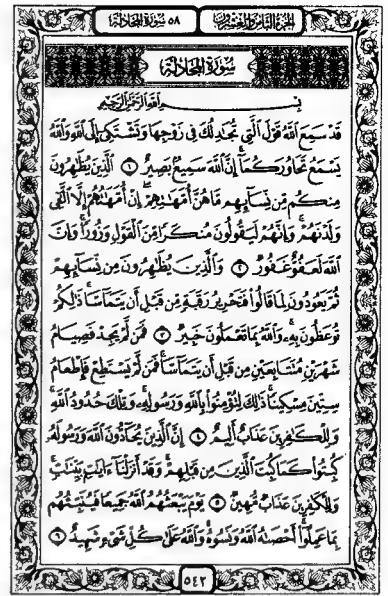 الجزء الثامن والعشرون ٥٨ سورة المجادلة
سورة المجادلة
بسم الله الرحمن الرحيم
قَدْ سَمِعَ اللَّهُ قَوْلَ الَّتِي تُجَادِلُكَ فِي زَوْجِهَا وَتَشْتَكِي إِلَى اللَّهِ وَاللَّهُ
يَسْمَعُ تَحَاوُرَكُمَا إِنَّ اللَّهَ سَمِيعٌ بَصِيرٌ ١ الَّذِينَ يُظَاهِرُونَ
مِنكُم مِّن نِّسَائِهِم مَّا هُنَّ أُمَّهَاتِهِمْ إِنْ أُمَّهَاتُهُمْ إِلَّا اللَّائِي
وَلَدْنَهُمْ وَإِنَّهُمْ لَيَقُولُونَ مُنكَرًا مِّنَ الْقَوْلِ وَزُورًا وَإِنَّ
اللَّهَ لَعَفُوٌّ غَفُورٌ ٢ وَالَّذِينَ يُظَاهِرُونَ مِن نِّسَائِهِمْ
ثُمَّ يَعُودُونَ لِمَا قَالُوا فَتَحْرِيرُ رَقَبَةٍ مِّن قَبْلِ أَن يَتَمَاسَّا ذَلِكُمْ
تُوعَظُونَ بِهِ وَاللَّهُ بِمَا تَعْمَلُونَ خَبِيرٌ ٣ فَمَن لَّمْ يَجِدْ فَصِيَامُ
شَهْرَيْنِ مُتَتَابِعَيْنِ مِن قَبْلِ أَن يَتَمَاسَّا فَمَن لَّمْ يَسْتَطِعْ فَإِطْعَامُ
سِتِّينَ مِسْكِينًا ذَلِكَ لِتُؤْمِنُوا بِاللَّهِ وَرَسُولِهِ وَتِلْكَ حُدُودُ اللَّهِ
وَلِلْكَافِرِينَ عَذَابٌ أَلِيمٌ ٤ إِنَّ الَّذِينَ يُحَادُّونَ اللَّهَ وَرَسُولَهُ
كُبِتُوا كَمَا كُبِتَ الَّذِينَ مِن قَبْلِهِمْ وَقَدْ أَنزَلْنَا آيَاتٍ بَيِّنَاتٍ
وَلِلْكَافِرِينَ عَذَابٌ مُّهِينٌ ٥ يَوْمَ يَبْعَثُهُمُ اللَّهُ جَمِيعًا فَيُنَبِّئُهُم
بِمَا عَمِلُوا أَحْصَاهُ اللَّهُ وَنَسُوهُ وَاللَّهُ عَلَى كُلِّ شَيْءٍ شَهِيدٌ ٦
٥٤٢